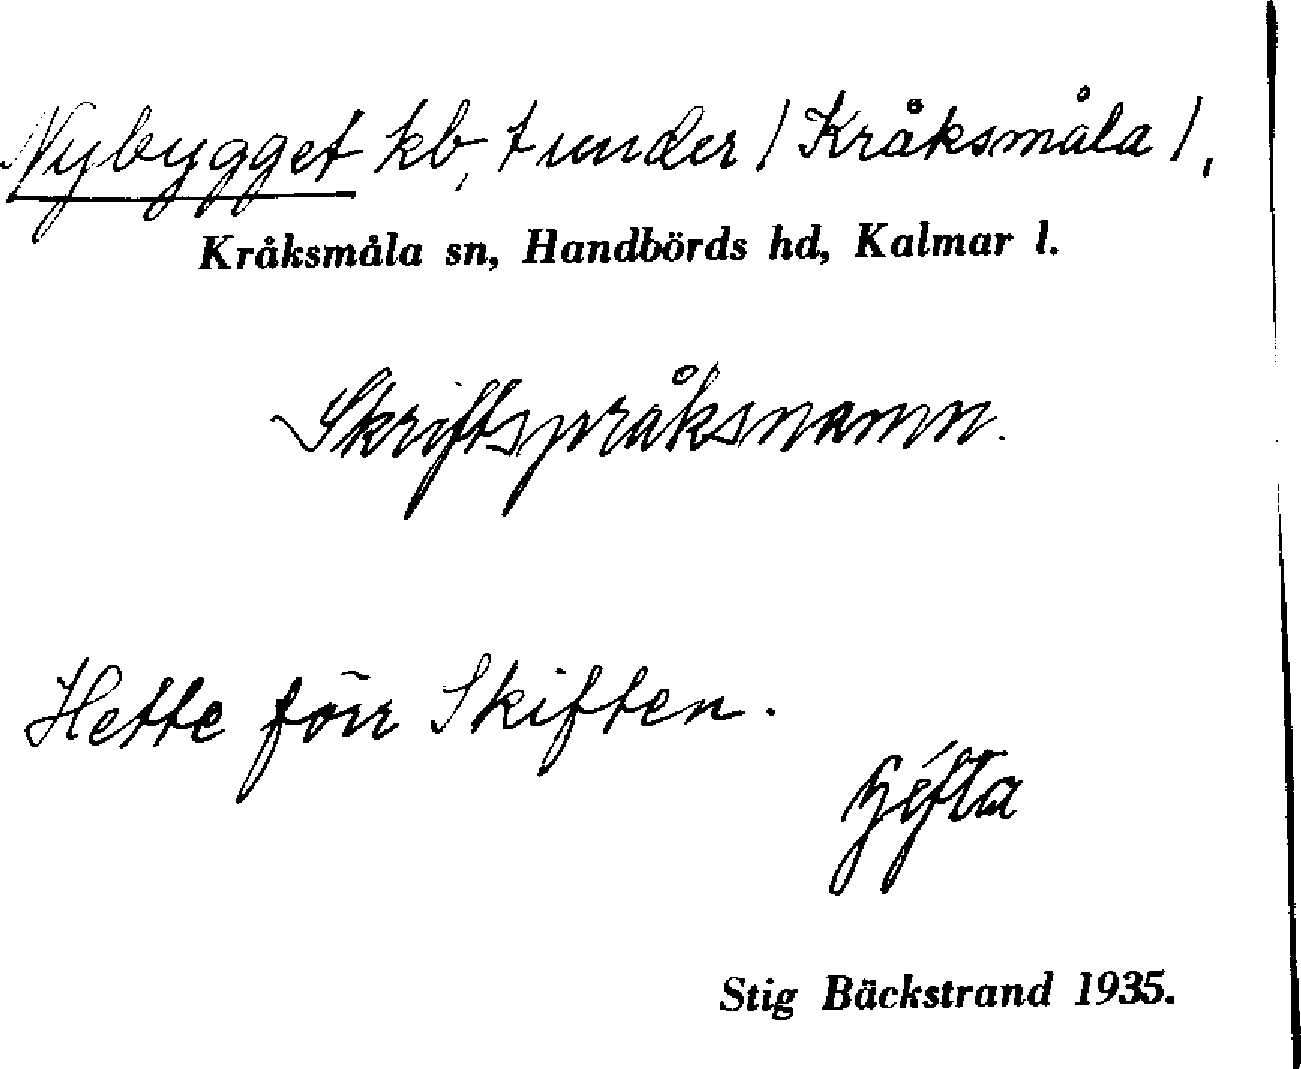 Nybygget kb, t under / Kråksmåla /,
Kråksmåla sn, Handbörds hd, Kalmar l.
Skriftspråksnamn.
Hette förr Skiften.
Stig Bäckstrand 1935.